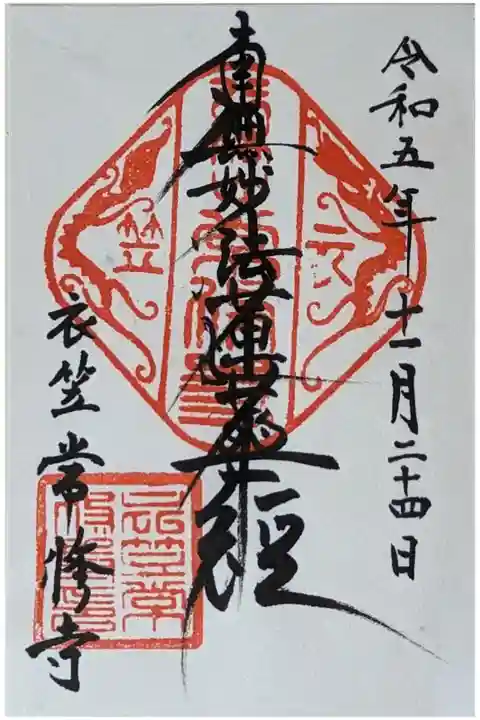 令和五年十一月二十四日
南無妙法蓮華経
衣
笠
衣笠常修寺